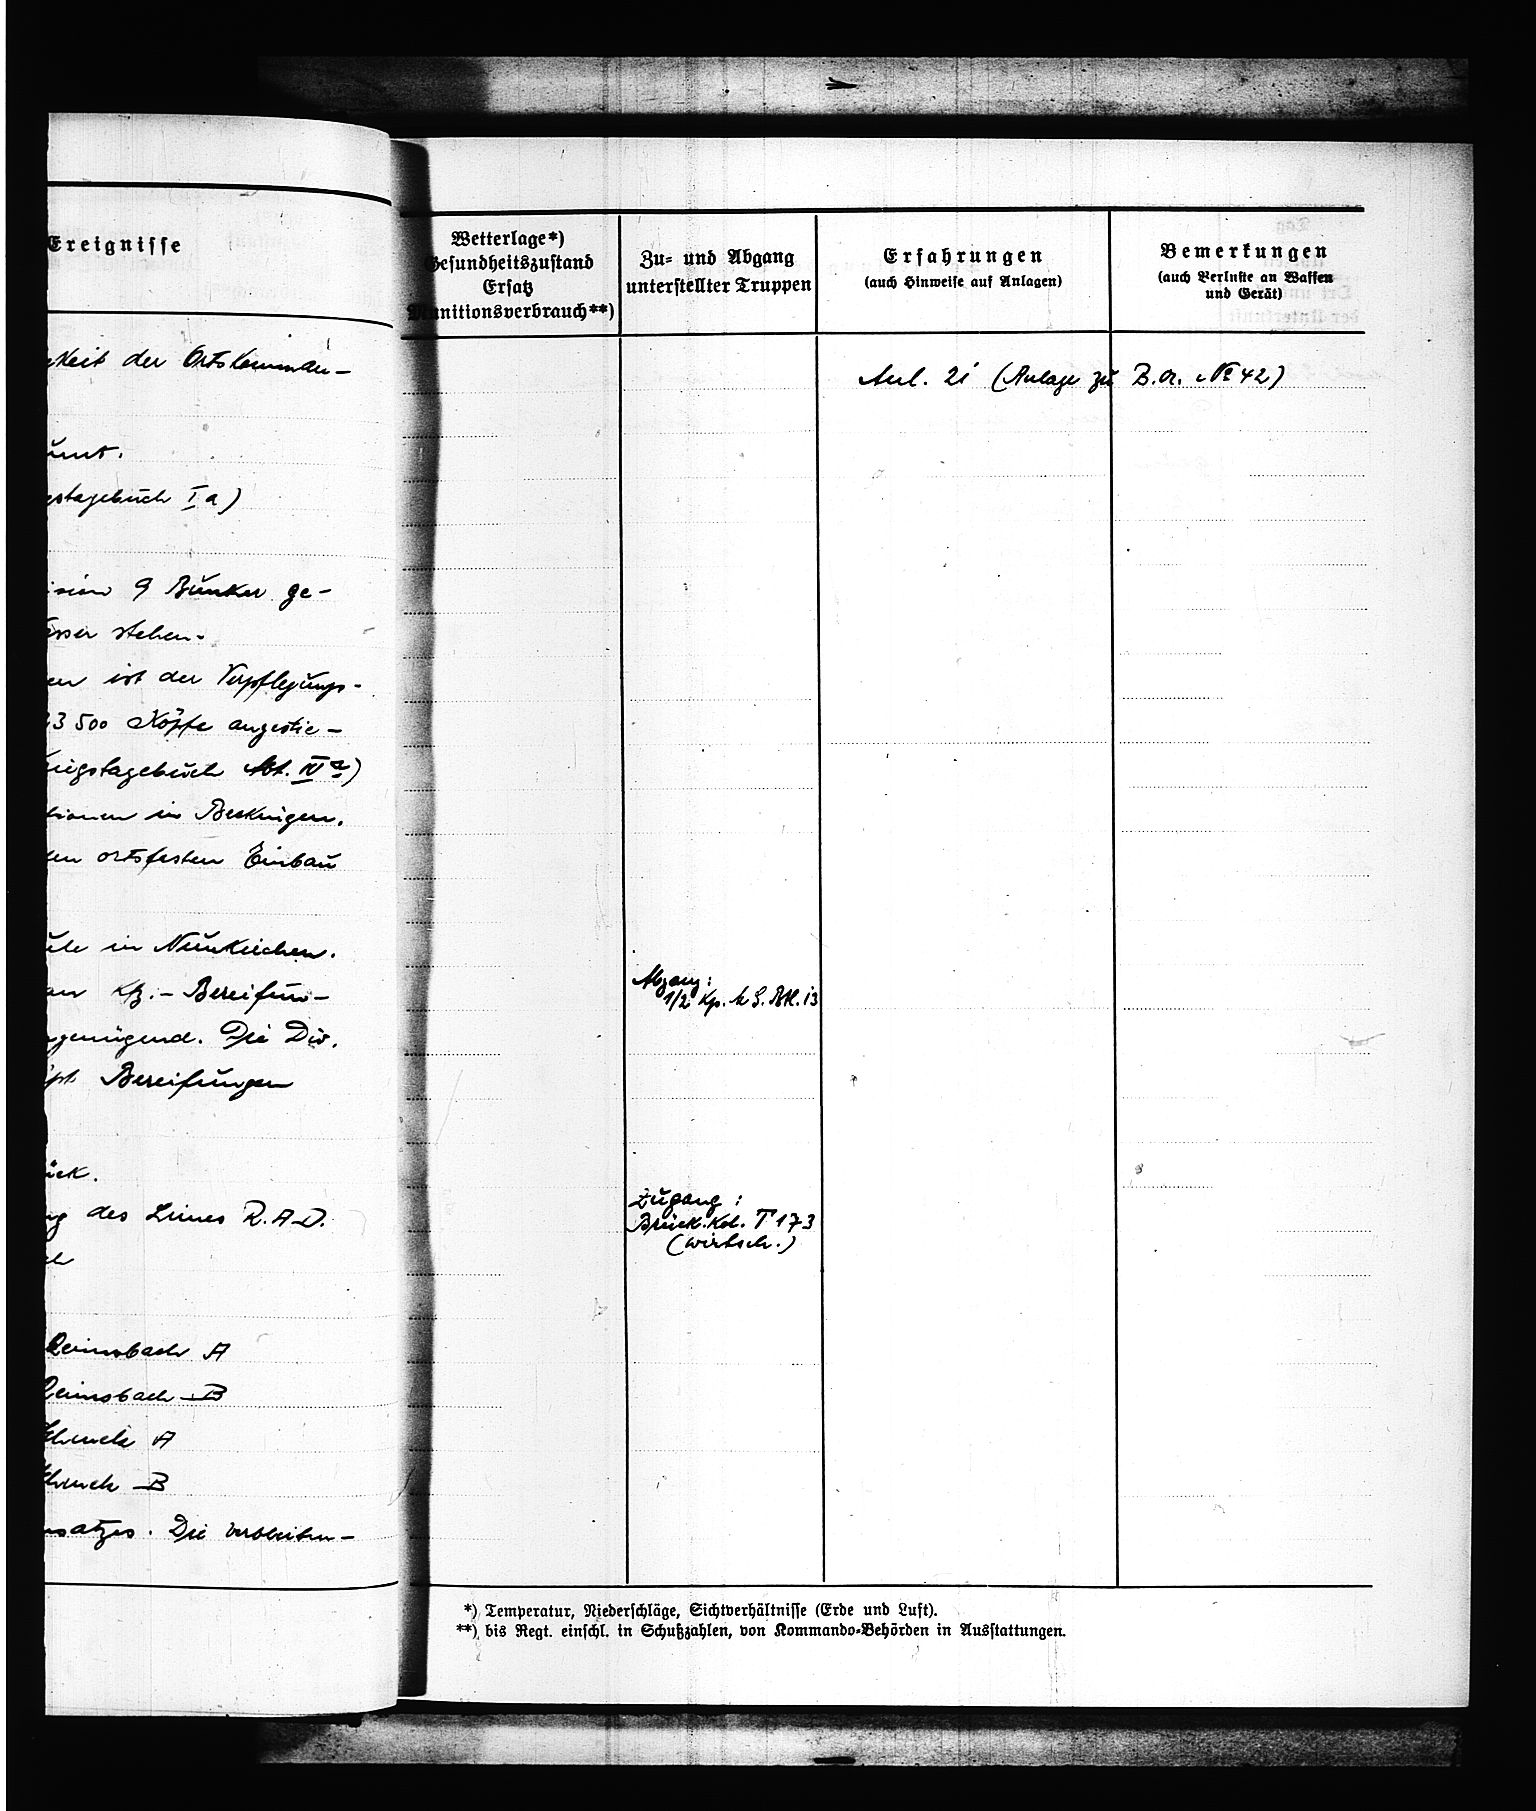 Ereignisse
keit der Ortskomman-
umt.
estagebuch Ia)
ision 9 Bunker ge-
sser stehen.
en ist der Verpflegungs-
3 500 Köpfe angestie-
iegstagebuch Abt. IVa)
tionen in Beckingen.
den ortsfesten Einbau
ule in Neunkirchen.
an Kfz.-Bereifun-
genügend. Die Div.
Bereifungen
ück.
ng des Limes R.A.D.
Reimsbach A
Reimsbach B
A
B
nsatzes. Die
Wetterlage*)
Gesundheitszustand
Ersatz
Munitionsverbrauch**)
Zu- und Abgang
unterstellter Truppen
Erfahrungen
(auch Hinweise auf Anlagen)
Bemerkungen
(auch Verluste an Waffen
und Gerät)
Anl. 21 (Anlage zu B.A. No 42)
Abgang:
1/2 Kp. M.G. Btl. 13
Zugang:
Brück. Kol. T 173
(wirtsch.)
*) Temperatur, Niederschläge, Sichtverhältnisse (Erde und Luft).
**) bis Regt. einschl. in Schußzahlen, von Kommando-Behörden in Ausstattungen.